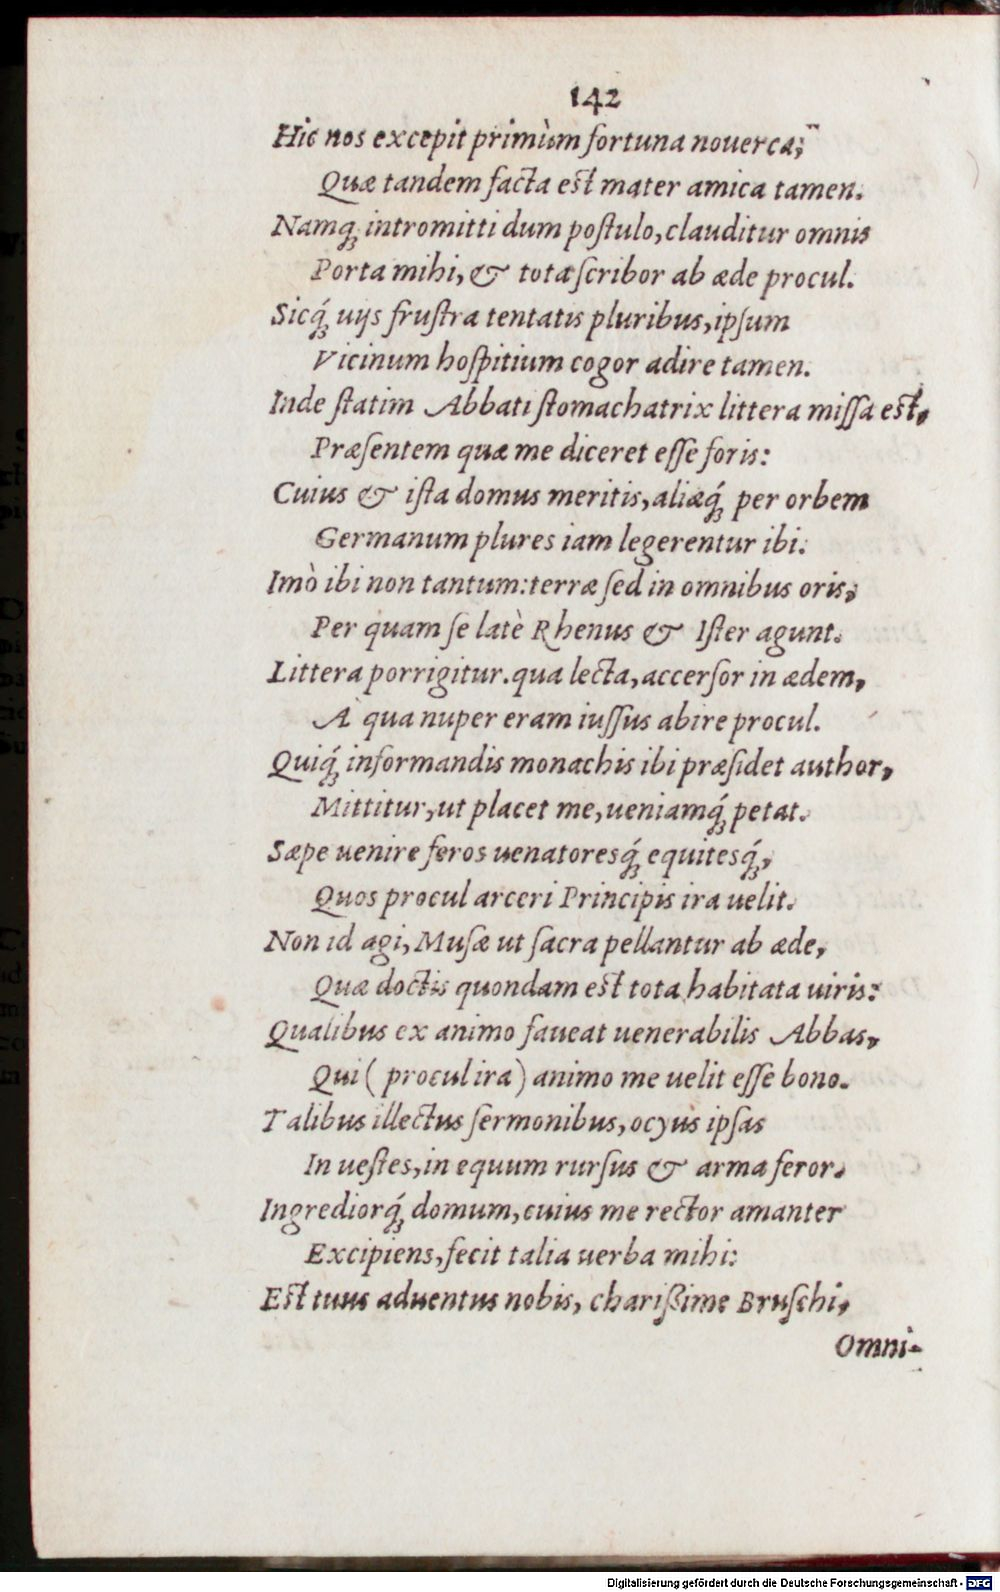 142
Hic nos excepit primùm fortuna nouerca;
Quæ tandem facta est mater amica tamen.
Namq́; intromitti dum poſtulo, clauditur omnis
Porta mihi, & tota ſcribor ab æde procul.
Sicq́; uijs fruſtra tentatis pluribus, ipſum
Vicinum hoſpitium cogor adire tamen.
Inde ſtatim Abbati ſtomachatrix littera miſſa est,
Præſentem quæ me diceret eſſe foris:
Cuius & iſta domus meritis, aliæq́; per orbem
Germanum plures iam legerentur ibi.
Imò ibi non tantum: terræ ſed in omnibus oris,
Per quam ſe latè Rhenus & Iſter agunt.
Littera porrigitur. qua lecta, accerſor in ædem,
A qua nuper eram iuſſus abire procul.
Quiq́; informandis monachis ibi præſidet author,
Mittitur, ut placet me, ueniamq́; petat.
Sæpe uenire feros uenatoresq́; equitesq́;,
Quos procul arceri Principis ira uelit.
Non id agi, Muſæ ut ſacra pellantur ab æde,
Quæ doctis quondam est tota habitata uiris:
Qualibus ex animo faueat uenerabilis Abbas,
Qui ( procul ira ) animo me uelit eſſe bono.
Talibus illectus ſermonibus, ocyus ipſas
In ueſtes, in equum rurſus & arma feror.
Ingrediorq́; domum, cuius me rector amanter
Excipiens, fecit talia uerba mihi:
Est tuus aduentus nobis, charißime Bruſchi,
Omni-
Digitalisierung gefördert durch die Deutsche Forschungsgemeinschaft - DFG